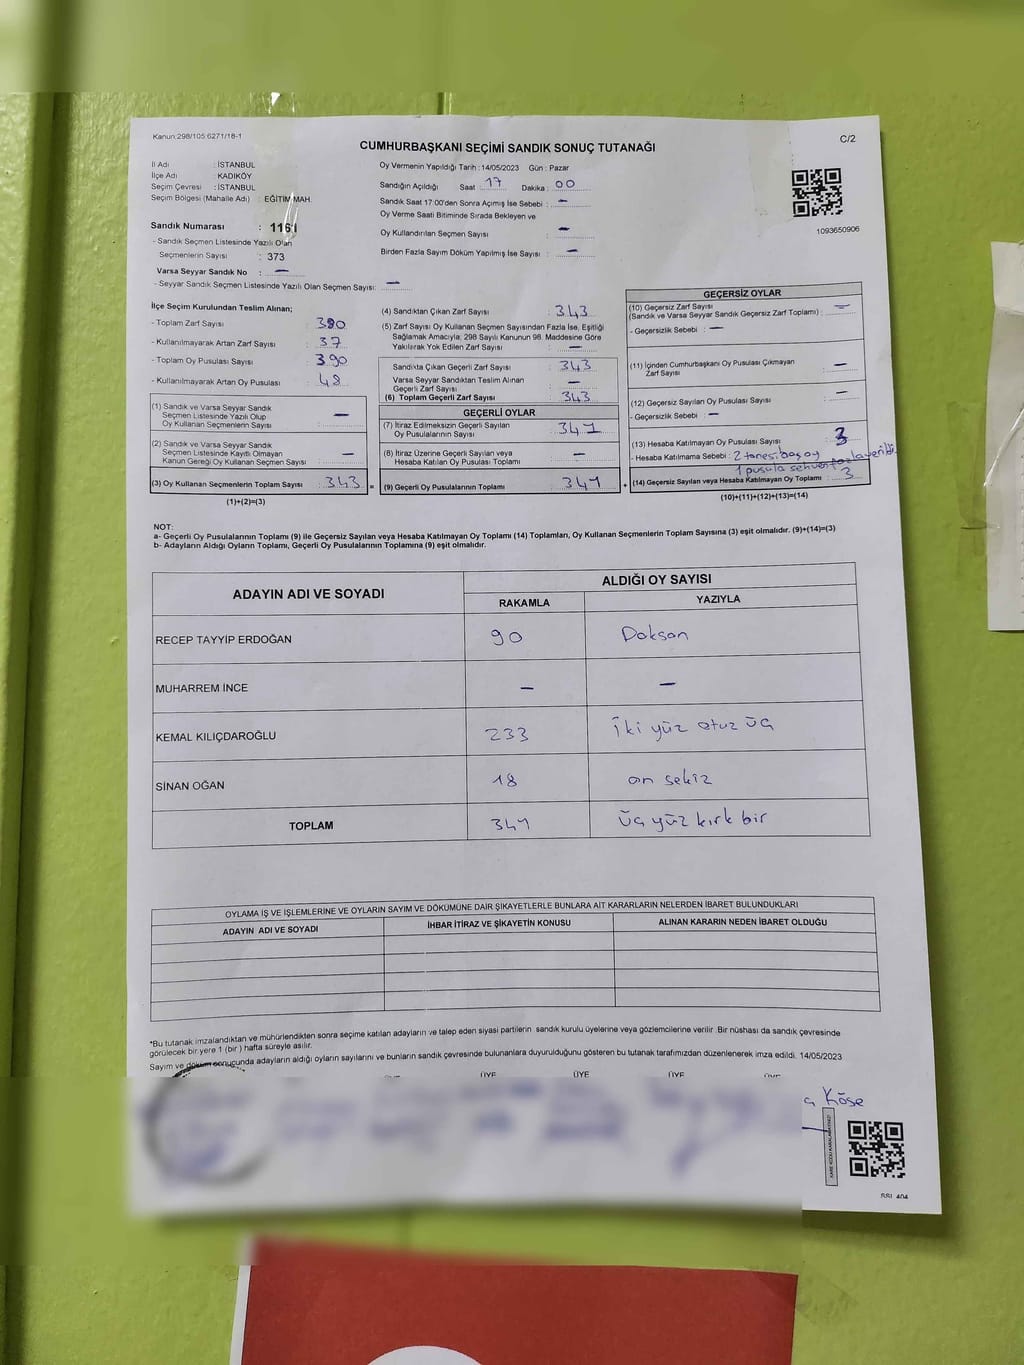 Kanun:298/105:6271/18-1
C/2
CUMHURBAŞKANI SEÇİMİ SANDIK SONUÇ TUTANAĞI
İl Adı : İSTANBUL
İlçe Adı : KADIKÖY
Seçim Çevresi : İSTANBUL
Seçim Bölgesi (Mahalle Adı) : EĞİTİM MAH.
Sandık Numarası : 1161
- Sandık Seçmen Listesinde Yazılı Olan
Seçmenlerin Sayısı : 373
Varsa Seyyar Sandık No : —
- Seyyar Sandık Seçmen Listesinde Yazılı Olan Seçmen Sayısı: —
Oy Vermenin Yapıldığı Tarih : 14/05/2023 Gün : Pazar
Sandığın Açıldığı Saat : 17 Dakika : 00
Sandık Saat 17:00'den Sonra Açımış İse Sebebi : —
Oy Verme Saati Bitiminde Sırada Bekleyen ve
Oy Kullandırılan Seçmen Sayısı : —
Birden Fazla Sayım Döküm Yapılmış İse Sayısı : —
1093650906
İlçe Seçim Kurulundan Teslim Alınan;
- Toplam Zarf Sayısı : 390
- Kullanılmayarak Artan Zarf Sayısı : 37
- Toplam Oy Pusulası Sayısı : 390
- Kullanılmayarak Artan Oy Pusulası : 48
(1) Sandık ve Varsa Seyyar Sandık
Seçmen Listesinde Yazılı Olup
Oy Kullanan Seçmenlerin Sayısı : —
(2) Sandık ve Varsa Seyyar Sandık
Seçmen Listesinde Kayıtlı Olmayan
Kanun Gereği Oy Kullanan Seçmen Sayısı : —
(3) Oy Kullanan Seçmenlerin Toplam Sayısı : 343 =
(1)+(2)=(3)
(4) Sandıktan Çıkan Zarf Sayısı : 343
(5) Zarf Sayısı Oy Kullanan Seçmen Sayısından Fazla İse, Eşitliği
Sağlamak Amacıyla; 298 Sayılı Kanunun 98. Maddesine Göre
Yakılarak Yok Edilen Zarf Sayısı : —
Sandıkta Çıkan Geçerli Zarf Sayısı : 343
Varsa Seyyar Sandıktan Teslim Alınan
Geçerli Zarf Sayısı : —
(6) Toplam Geçerli Zarf Sayısı : 343
GEÇERLİ OYLAR
(7) İtiraz Edilmeksizin Geçerli Sayılan
Oy Pusulalarının Sayısı : 341
(8) İtiraz Üzerine Geçerli Sayılan veya
Hesaba Katılan Oy Pusulası Toplamı : —
(9) Geçerli Oy Pusulalarının Toplamı : 341 +
GEÇERSİZ OYLAR
(10) Geçersiz Zarf Sayısı
(Sandık ve Varsa Seyyar Sandık Geçersiz Zarf Toplamı) : —
- Geçersizlik Sebebi : —
(11) İçinden Cumhurbaşkanı Oy Pusulası Çıkmayan
Zarf Sayısı : —
(12) Geçersiz Sayılan Oy Pusulası Sayısı : —
- Geçersizlik Sebebi : —
(13) Hesaba Katılmayan Oy Pusulası Sayısı : 3
- Hesaba Katılmama Sebebi : 2 tanesi boş oy
1 pusula sehven fazla verildi.
(14) Geçersiz Sayılan veya Hesaba Katılmayan Oy Toplamı : 3
(10)+(11)+(12)+(13)=(14)
NOT:
a- Geçerli Oy Pusulalarının Toplamı (9) ile Geçersiz Sayılan veya Hesaba Katılmayan Oy Toplamı (14) Toplamları, Oy Kullanan Seçmenlerin Toplam Sayısına (3) eşit olmalıdır. (9)+(14)=(3)
b- Adayların Aldığı Oyların Toplamı, Geçerli Oy Pusulalarının Toplamına (9) eşit olmalıdır.
ADAYIN ADI VE SOYADI
ALDIĞI OY SAYISI
RAKAMLA YAZIYLA
RECEP TAYYİP ERDOĞAN 90 Doksan
MUHARREM İNCE — —
KEMAL KILIÇDAROĞLU 233 İki yüz otuz üç
SİNAN OĞAN 18 on sekiz
TOPLAM 341 üç yüz kırk bir
OYLAMA İŞ VE İŞLEMLERİNE VE OYLARIN SAYIM VE DÖKÜMÜNE DAİR ŞİKAYETLERLE BUNLARA AİT KARARLARIN NELERDEN İBARET BULUNDUKLARI
ADAYIN ADI VE SOYADI İHBAR İTİRAZ VE ŞİKAYETİN KONUSU ALINAN KARARIN NEDEN İBARET OLDUĞU
*Bu tutanak imzalandıktan ve mühürlendikten sonra seçime katılan adayların ve talep eden siyasi partilerin sandık kurulu üyelerine veya gözlemcilerine verilir. Bir nüshası da sandık çevresinde
görülecek bir yere 1 (bir) hafta süreyle asılır.
Sayım ve döküm sonucunda adayların aldığı oyların sayılarını ve bunların sandık çevresinde bulunanlara duyurulduğunu gösteren bu tutanak tarafımızdan düzenlenerek imza edildi. 14/05/2023
ÜYE ÜYE ÜYE
Köse